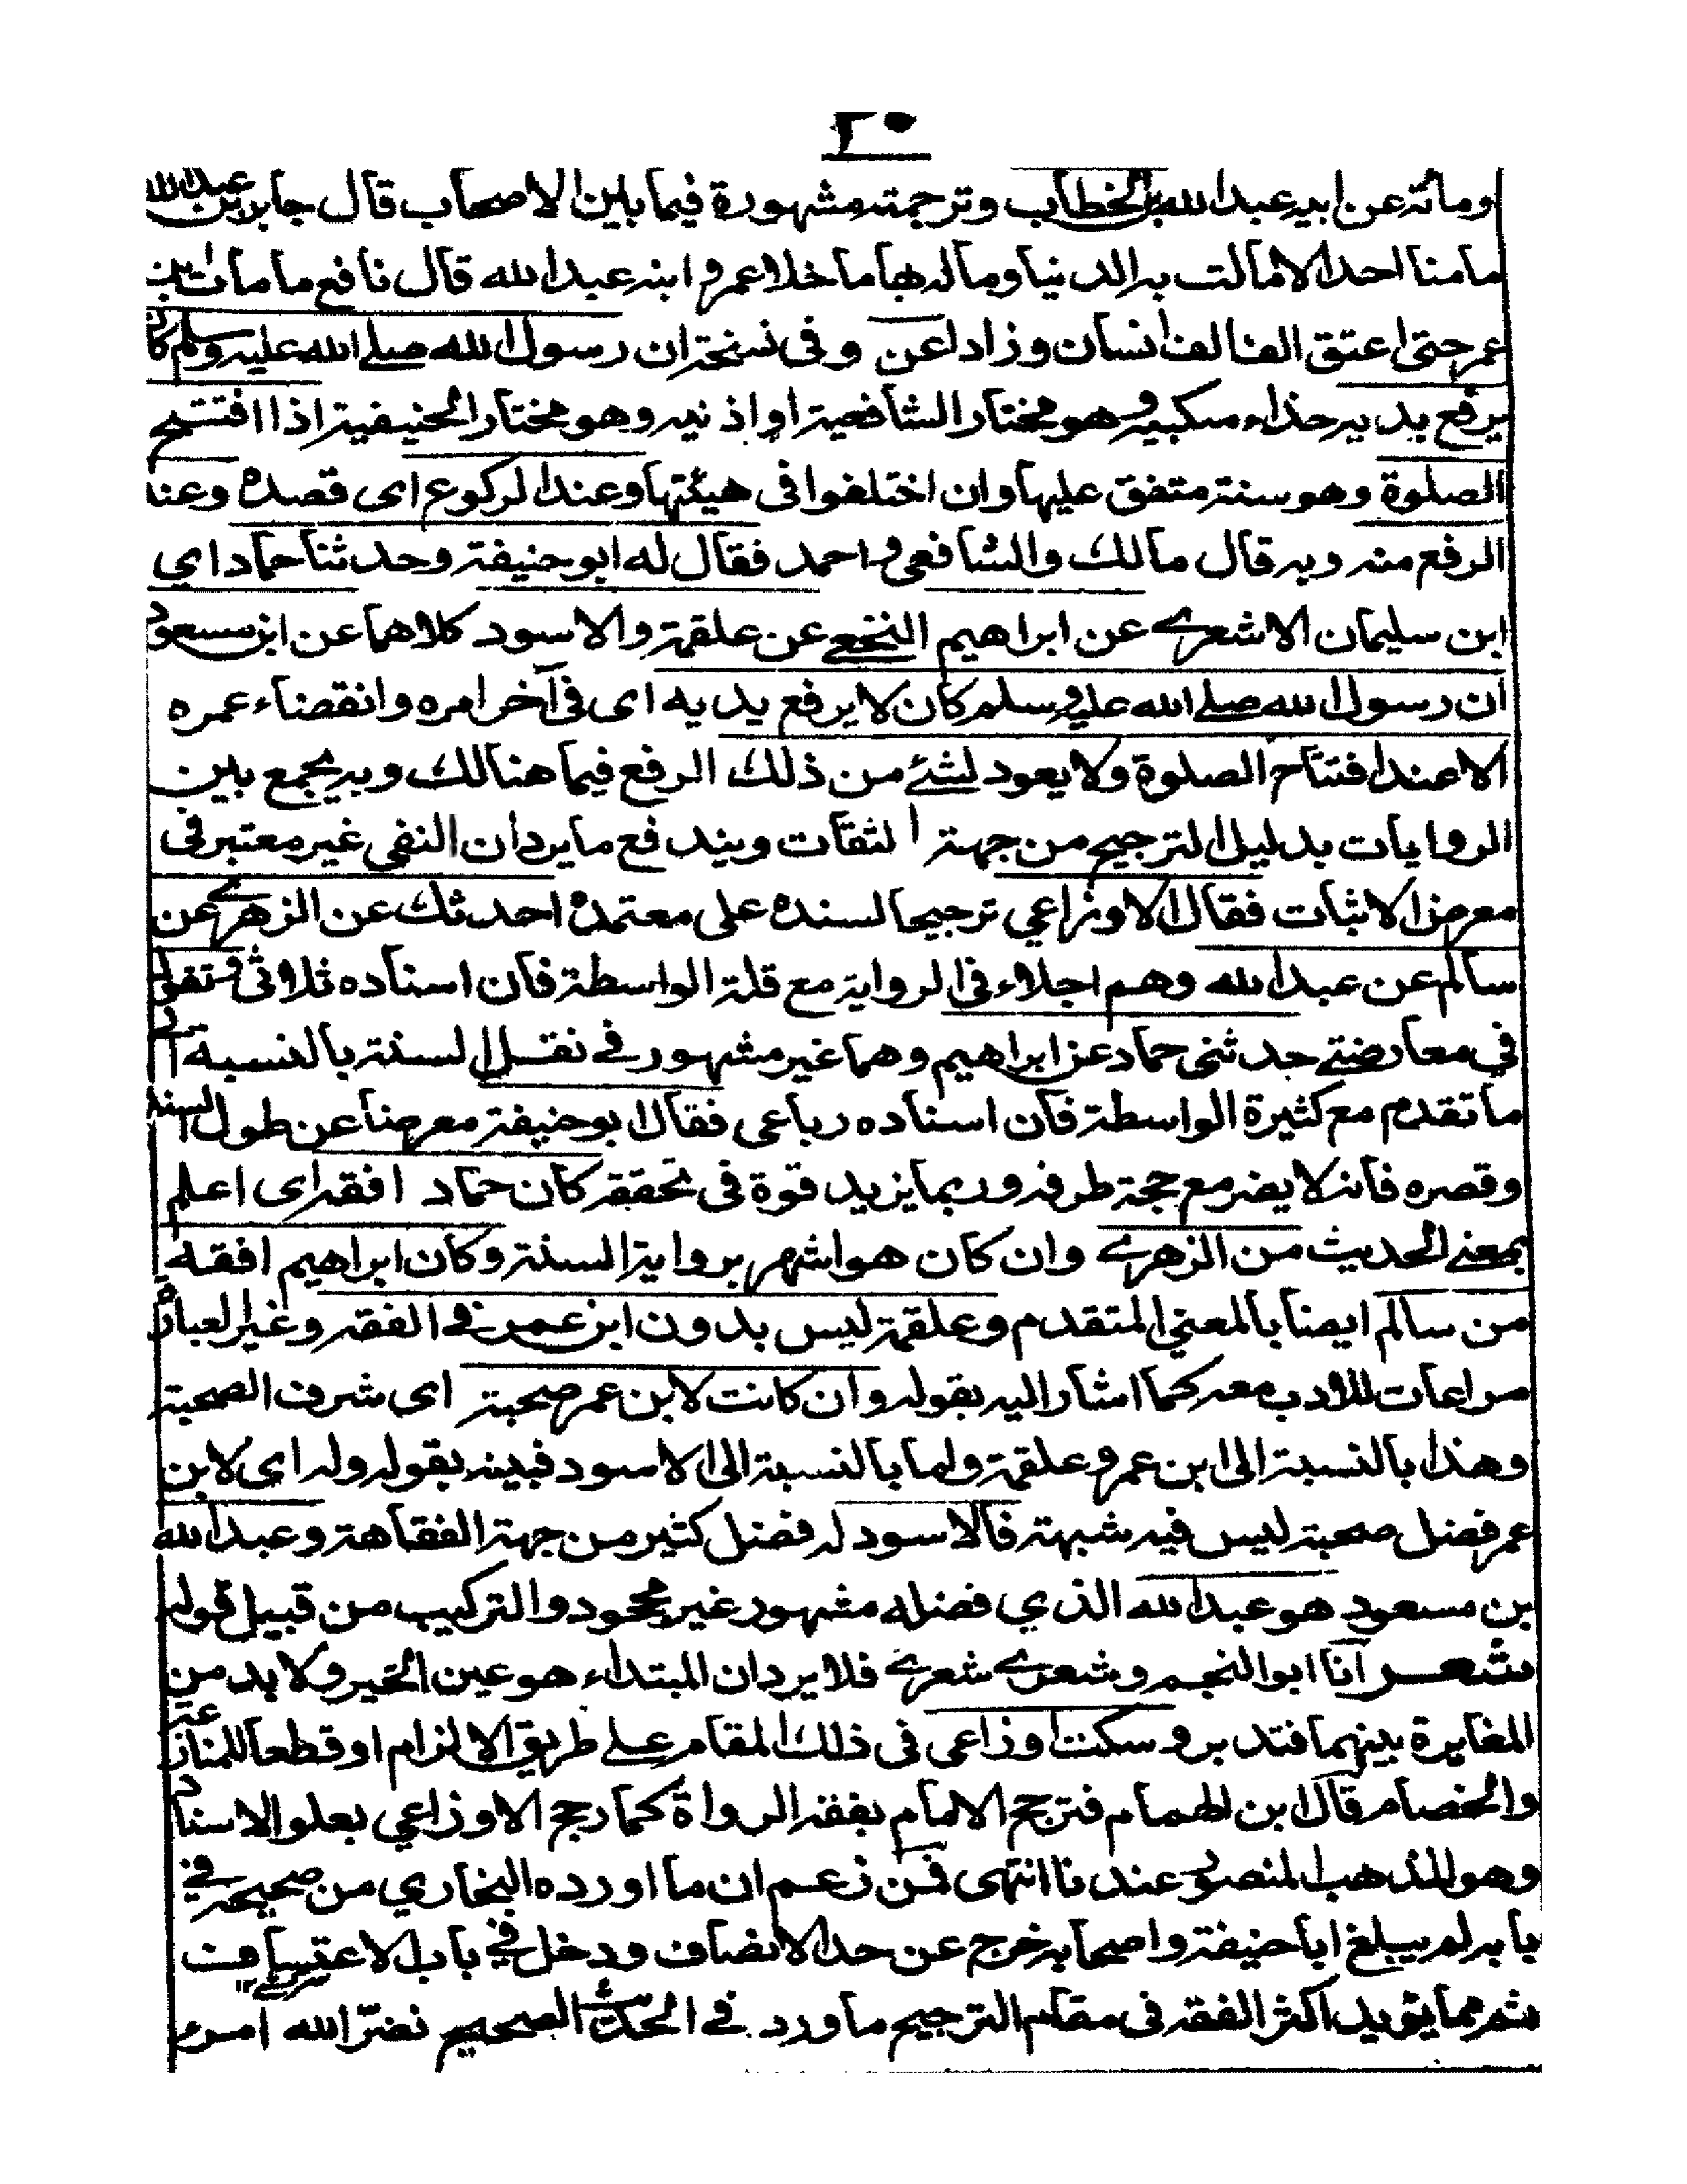 ٢٠
ومائة عن ابيه عبد الله بن الخطاب وترجمته مشهورة فيما بين الاصحاب قال جابر بن عبد الله
مامنا احد الا مالت به الدنيا ومال بها ما خلا عمر و ابنه عبد الله قال نافع ما مات ابن
عمر حتى اعتق الف الف انسان و زاد عن وفى نسخة ان رسول الله صلے الله عليه وسلم كان
يرفع يديه حذاء منكبيه وهو مختار الشافعية او اذنيه وهو مختار الحنيفية اذا افتتح
الصلوة وهو سنة متفق عليها وان اختلفوا فى هيئتها وعند الركوع اى قصده وعند
الرفع منه وبه قال مالك والشافعى واحمد فقال له ابو حنيفة وحدثنا حماد اي
ابن سليمان الاشعرے عن ابراهيم النخعے عن علقمة والاسود كلاهما عن ابن مسعود
ان رسول الله صلے الله عليه وسلم كان لا يرفع يديه اى فى آخر امره وانقضاء عمره
الا عند افتتاح الصلوة ولا يعود لشئے من ذلك الرفع فيما هنالك وبه يجمع بين
الروايات بدليل الترجيح من جهة الثقات ويندفع ما يرد ان النفى غير معتبر فى
معرض الاثبات فقال الاوزاعي ترجيحا لسنده على معتمده احدثك عن الزهرے عن
سالم عن عبد الله وهم اجلاء فى الرواية مع قلة الواسطة فان اسناده ثلاثى وتقول
في معارضتے حدثنى حماد عن ابراهيم وهما غير مشهور فے نقل السنة بالنسبة الى
ما تقدم مع كثيرة الواسطة فان اسناده رباعى فقال ابو حنيفة معرضا عن طول السند
وقصره فانه لا يضر مع حجة طرفه وربما يزيد قوة فى تحققه كان حماد افقه اى اعلم
بمعنے الحديث من الزهرے وان كان هو اشهر برواية السنة وكان ابراهيم افقه
من سالم ايضا بالمعنى المتقدم وعلقمة ليس بدون ابن عمر فے الفقه وغير العبارة
مراعات للادب معه كما اشار اليه بقوله وان كانت لابن عمر صحبة اى شرف الصحبة
وهذا بالنسبة الى ابن عمر وعلقمة واما بالنسبة الى الاسود فبينه بقوله وله اى لابن
عمر فضل صحبة ليس فيه شبهة فالاسود له فضل كثير من جهة الفقاهة وعبد الله
بن مسعود هو عبد الله الذي فضله مشهور غير مجحود والتركيب من قبيل قوله
شعر انا ابو النجم وشعرے شعرے فلا يرد ان المبتداء هو عين الخير ولا بد من
المغايرة بينهما فتدبر وسكت اوزاعى فى ذلك المقام علے طريق الالزام او قطعا للمنازعة
والخصام قال ابن الهمام فترجح الامام بفقه الرواة كما رجح الاوزاعي بعلو الاسناد
وهو المذهب المنصور عندنا انتهى فمن زعم ان ما اورده البخاري من صحيحه فے
بابه لم يبلغ ابا حنيفة واصحابه خرج عن حد الانصاف ودخل فے باب الاعتساف
ثم مما يؤيد اكثر الفقه فى مقام الترجيح ما ورد فے الحديث الصحيح نضر الله امرء